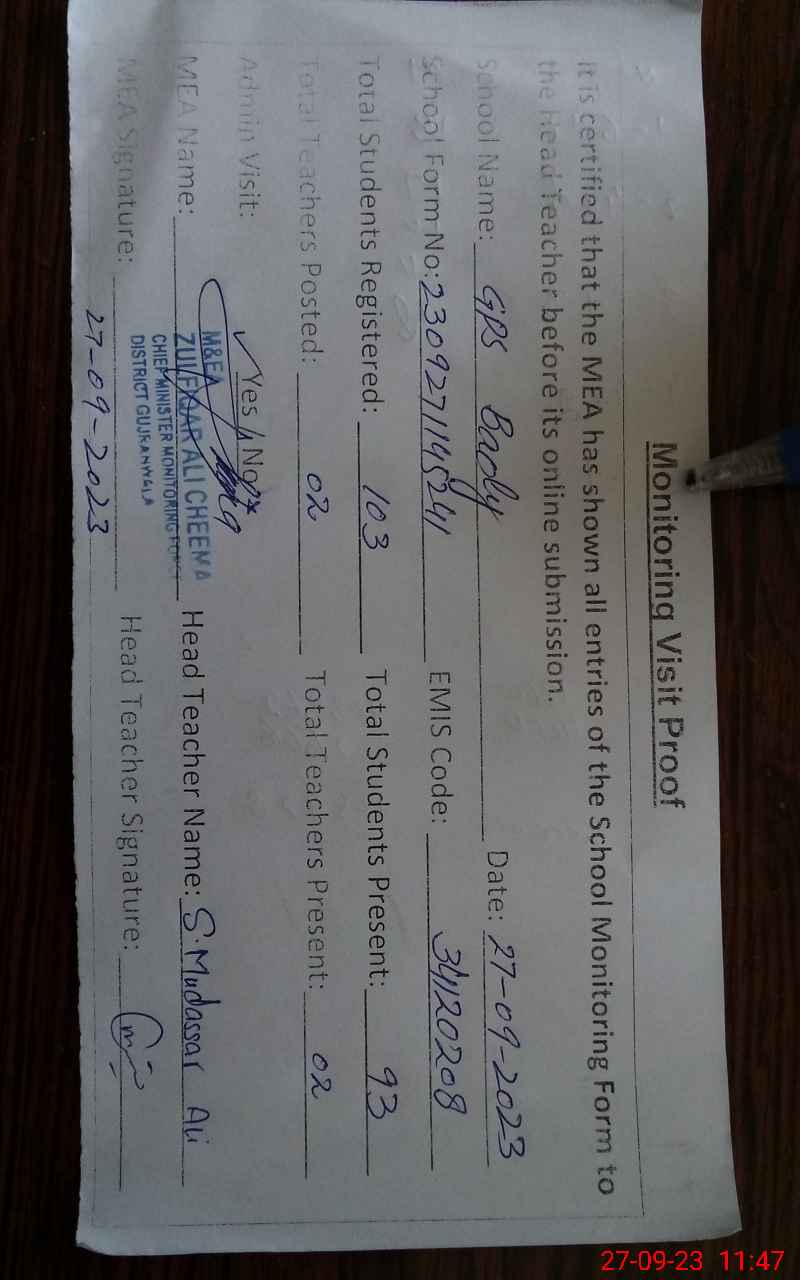 Monitoring Visit Proof
It is certified that the MEA has shown all entries of the School Monitoring Form to
the Head Teacher before its online submission.
School Name: GPS Baoly Date: 27-09-2023
School Form No: 2309271145241 EMIS Code: 34120208
Total Students Registered: 103 Total Students Present: 93
Total Teachers Posted: 02 Total Teachers Present: 02
Admin Visit: ✓ Yes / No
MEA Name: M&EA Head Teacher Name: S. Mudassar Ali
ZULFIQAR ALI CHEEMA
CHIEF MINISTER MONITORING FORCE
DISTRICT GUJRANWALA
MEA Signature: Head Teacher Signature:
27-09-2023
27-09-23 11:47